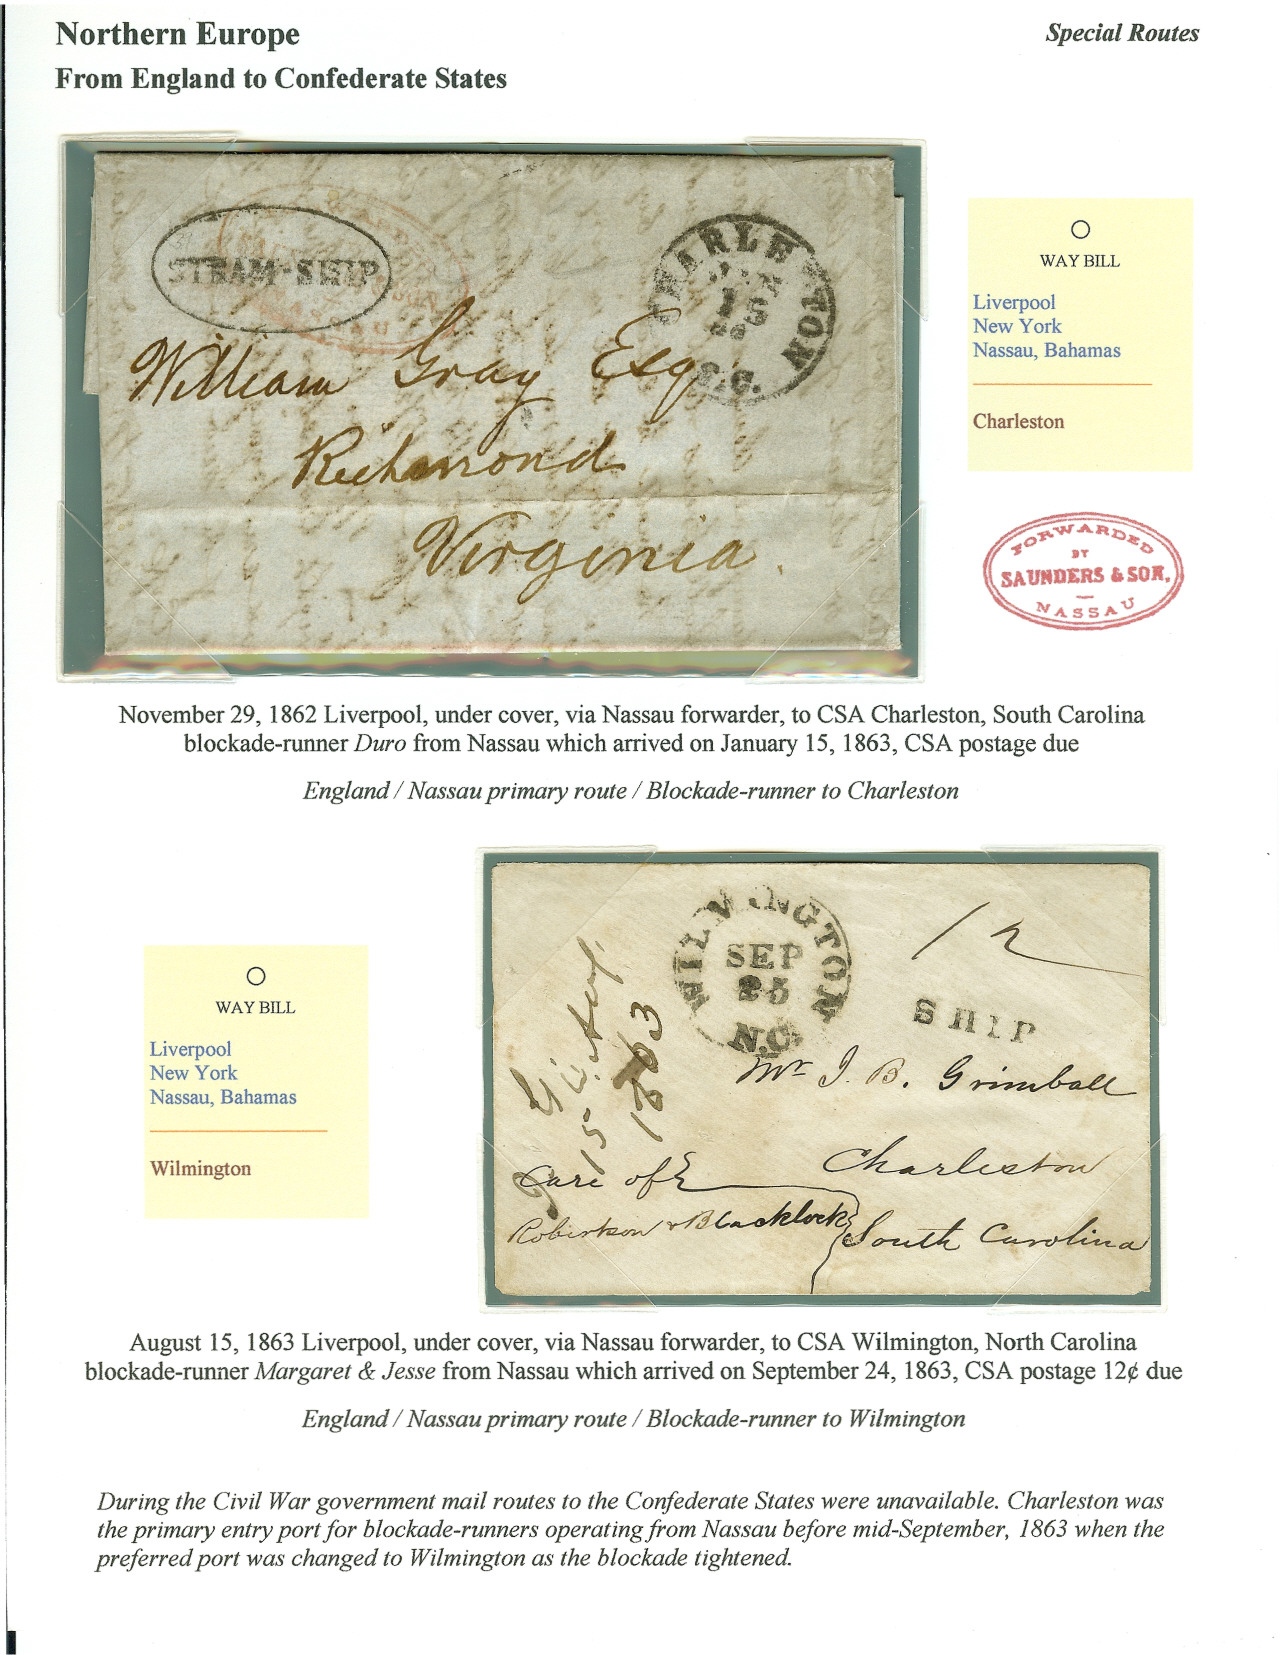 Northern Europe
Special Routes
From England to Confederate States
STEAM-SHIP
CHARLESTON
15
S.C.
William Gray Esq
Richmond
Virginia.
WAY BILL
Liverpool
New York
Nassau, Bahamas
Charleston
FORWARDED
BY
SAUNDERS & SON,
NASSAU
November 29, 1862 Liverpool, under cover, via Nassau forwarder, to CSA Charleston, South Carolina
blockade-runner Duro from Nassau which arrived on January 15, 1863, CSA postage due
England / Nassau primary route / Blockade-runner to Charleston
WAY BILL
Liverpool
New York
Nassau, Bahamas
Wilmington
WILMINGTON
SEP
25
N.C.
12
SHIP
15
1863
Mr J. B. Grimball
Charleston
South Carolina
Care of
Robertson & Blacklock
August 15, 1863 Liverpool, under cover, via Nassau forwarder, to CSA Wilmington, North Carolina
blockade-runner Margaret & Jesse from Nassau which arrived on September 24, 1863, CSA postage 12¢ due
England / Nassau primary route / Blockade-runner to Wilmington
During the Civil War government mail routes to the Confederate States were unavailable. Charleston was
the primary entry port for blockade-runners operating from Nassau before mid-September, 1863 when the
preferred port was changed to Wilmington as the blockade tightened.